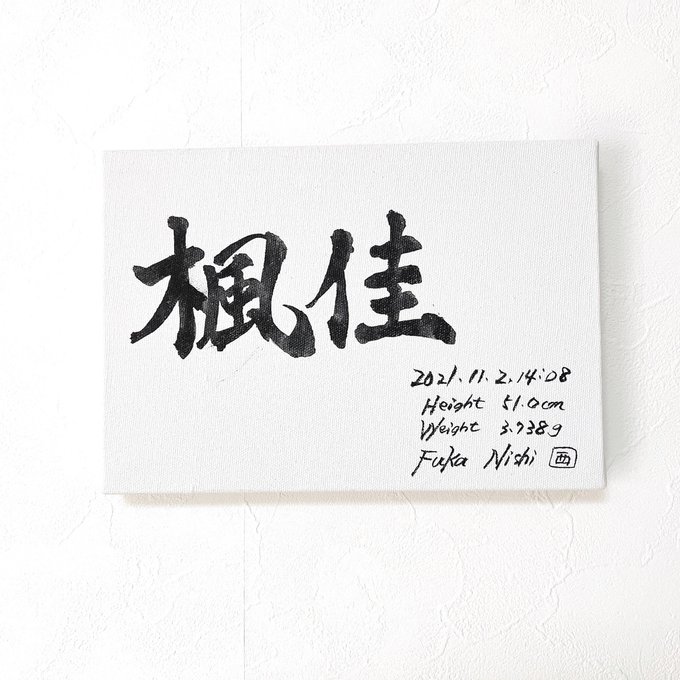 楓佳
2021.11.2.14:08
Height 51.0cm
Weight 3.738g
Fuka Nishi 西